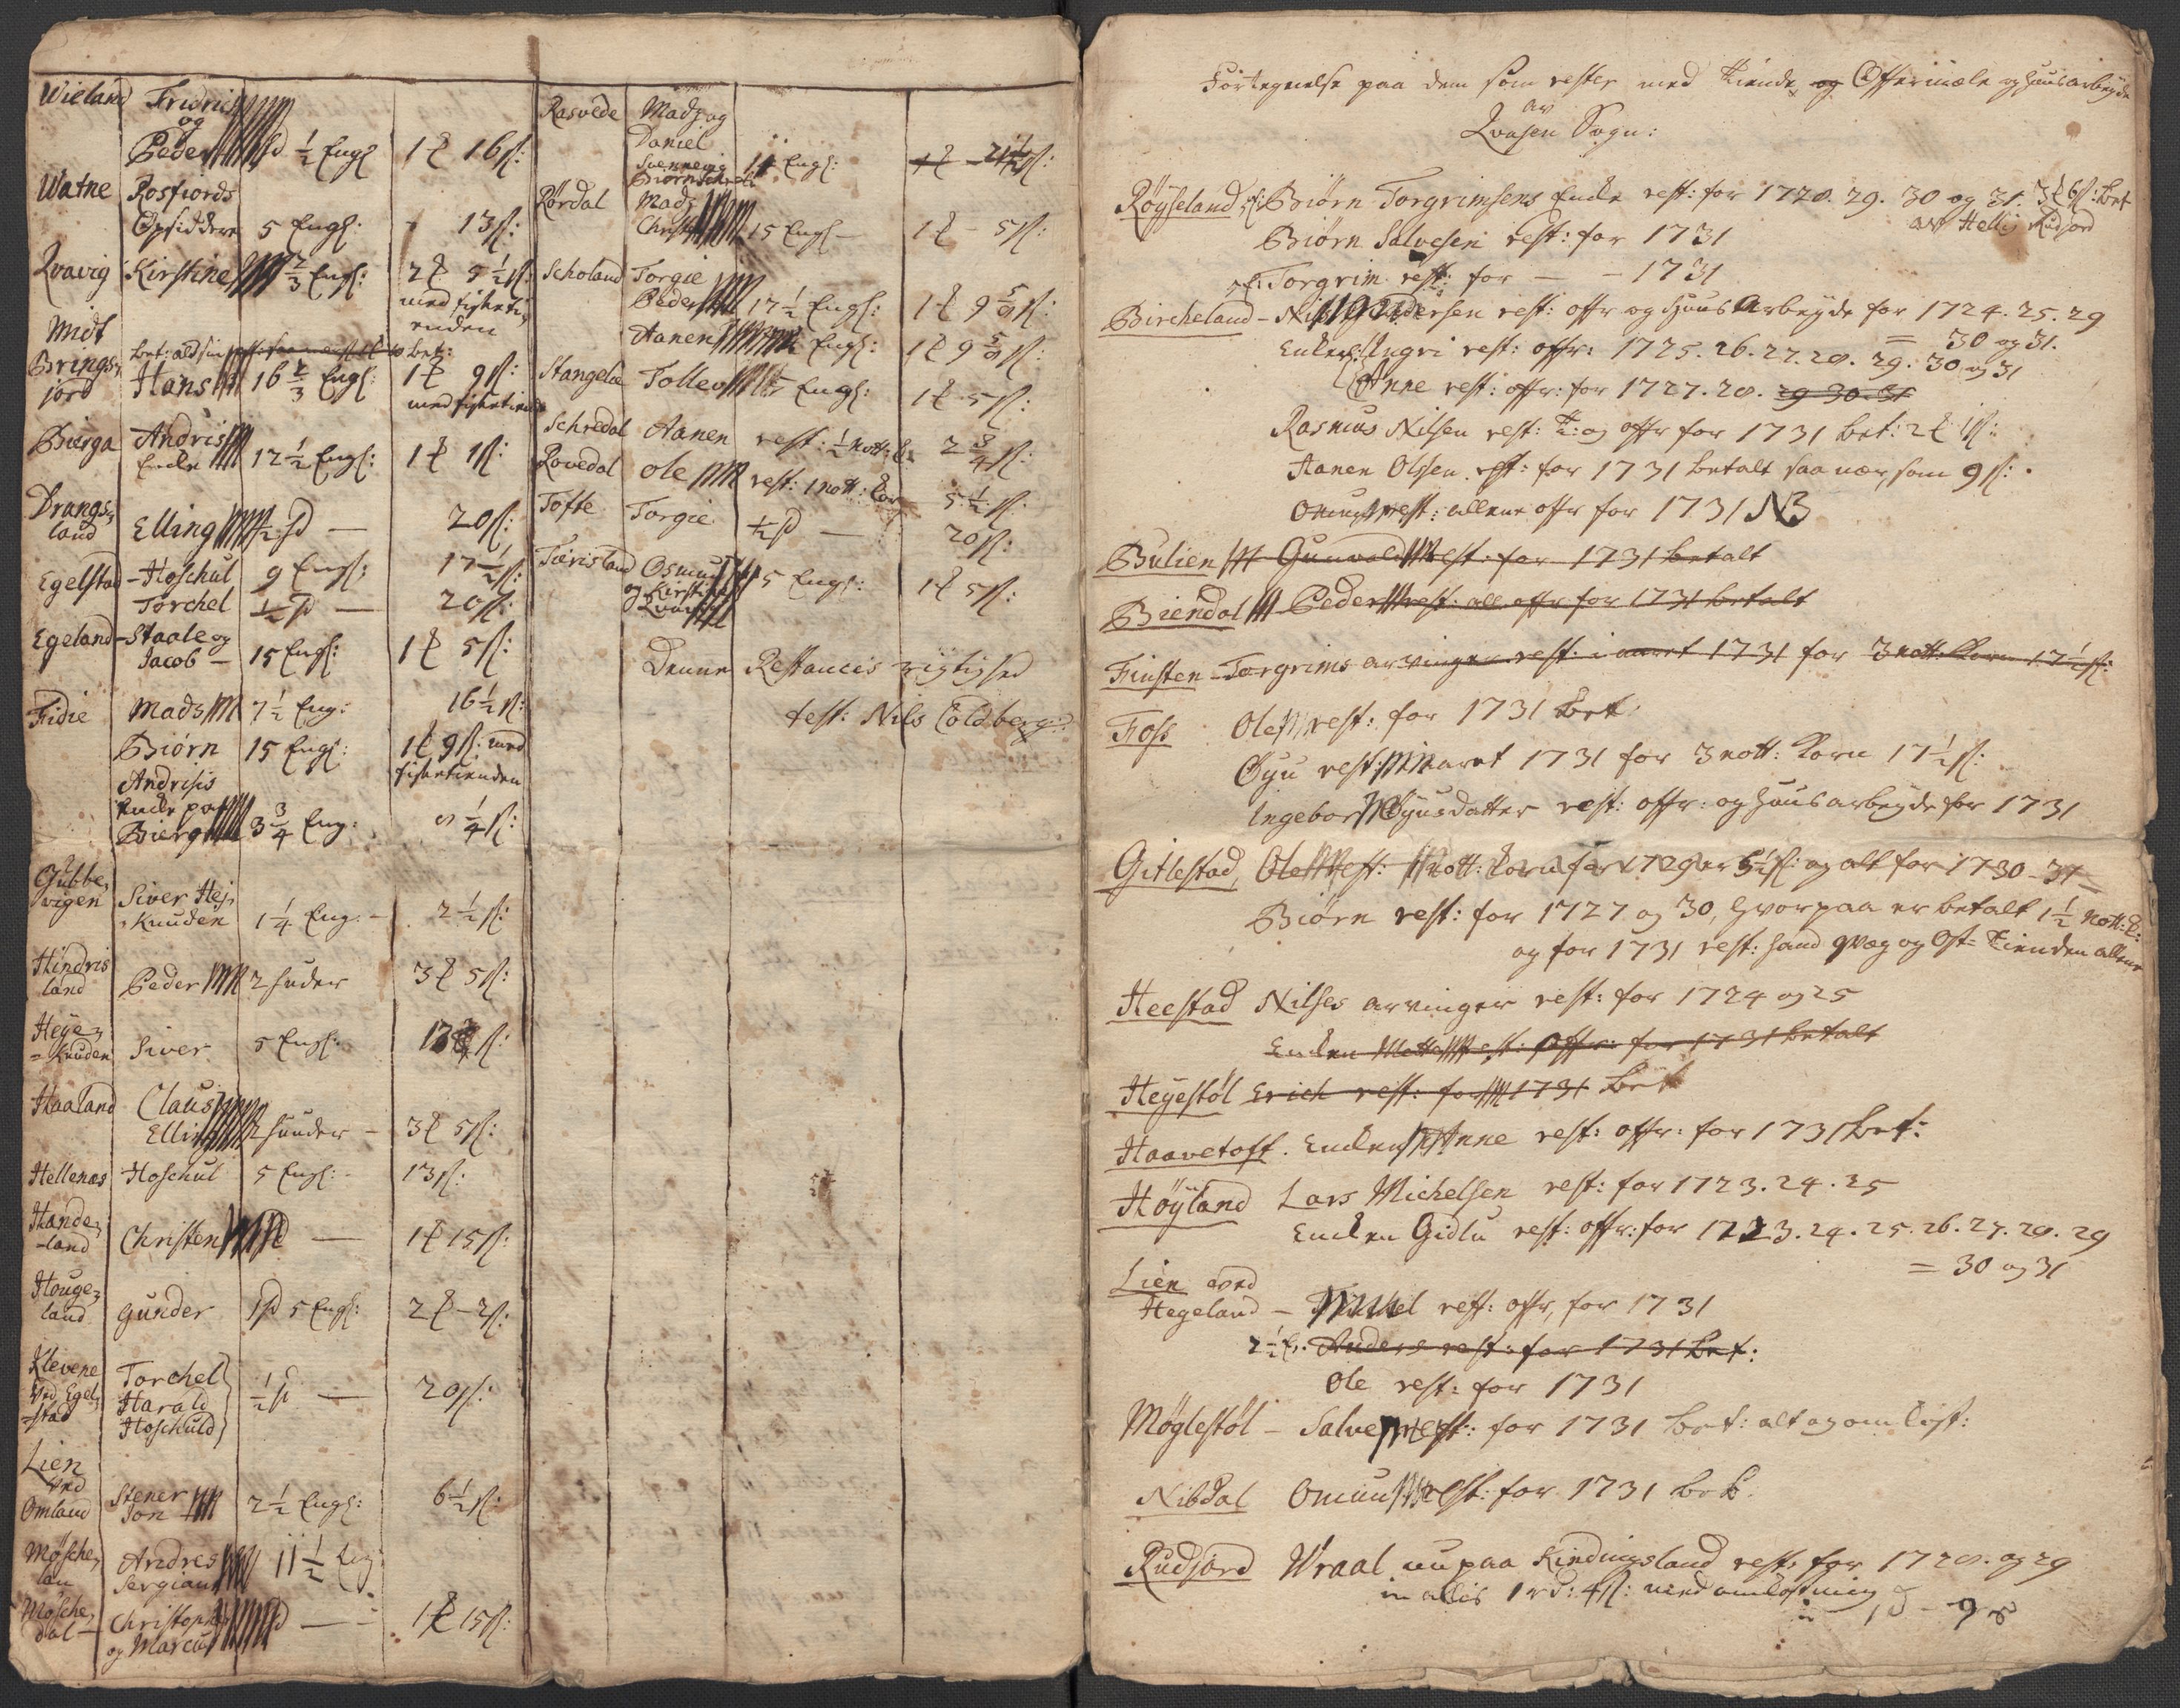 Wieland Fridric
og
Peder ½ Engl 1 16ſ:
Watne Rosfiords
Opsiddere 5 Engl: 13ſ:
Qvavig Kirstine ⅔ Engl: 2 5½ſ:
med fiske ti-
enden
Midt
Brings-
jord Hans 16⅔ Engl: 1 9ſ:
med fisketienden
Bierga Andris
Encke 12½ Engl: 1 1ſ:
Drangs-
land Elling ½ 20ſ:
Egelstad Hoschul 9 Engl: 17½ſ:
Torchel ½ 20ſ:
Egeland Staale og
Jacob 15 Engl: 1 5ſ:
Fidie Mads 7½ Eng: 16½ſ:
Biörn 15 Engl: 1 9ſ: med
fisketienden
Andrisis
Encke paa
Bierg 3¾ Eng:
Gubbe-
vigen Siver Hej-
Knuden 1¼ Eng. 2½ſ:
Hindris
land Peder 2 huder 3 5ſ:
Heye-
Knuden Siver 5 Engl:
Haaland Claus
Elling 2 huuder 3 5ſ:
Hellenes Hoschul 5 Engl: 13ſ:
Hande-
land Christen 1 15ſ:
Houge-
land Gunder 1 5 Engl: 2 - 2ſ:
Klevene
ved Egel-
stad Torchel
Harald
Hoschuld ½ 20ſ:
Lien
ved
Omland Stener
Jon 2½ Engl: 6½ſ:
Møsche-
lau Andres
Sergiant 11½ Eng
Møsche-
dal Christopher
og Marcus 1 15ſ:
Rasvede Mads og
Daniel
Svennevig
Biörn 14 Engl:
Rørdal Mads
Christen 15 Engl 1 5ſ:
Scholand Torgie
Peder 17½ Engl: 1 9⅝ſ:
Aanen Engl: 1 9⅝ſ:
Stangeland Tollev 15 Engl: 1 5ſ:
Schredal Aanen rest: ½ nott: 2¾ſ:
Rovedal Ole rest: 1 nott: Korn 5½ſ:
Tofte Torgie ½ 20ſ:
Færisland Osmund
og Kirstine
Qvavig 15 Engl: 1 5ſ:
Denne Restances rigtighed
test: Nils Coldberg:
Fortegnelse paa dem som rester med Tiende og Offermæle og huusarbeyde
av
Qvaſen Sogn:
Röyseland Biörn Torgrimsens Encke rest: for 1728. 29. 30 og 31. 3 6ſ: bet
av Hellj Rudjord
Biörn Salvesen rest: for 1731
Torgrim rest: for — 1731
Bircheland - Nils Pedersen rest: offr og huus arbeyde for 1724. 25. 29
= 30 og 31.
Encken Ingri rest: offr: 1725. 26. 27. 28. 29. 30 og 31
Anne rest: offr: for 1727. 28. 29 30. 31
Rasmus Nilsen rest: Ti: og offr for 1731 bet: 2 1ſ:
Aanen Olsen rest: for 1731 betalt saa nær som 9ſ:
Omund rest: allene offr for 1731 NB
Bulien Gunvald rest: for 1731 betalt
Biendal Peder rest: all offr for 1731 betalt
Finsten Torgrims arvinger rest: i aaret 1731 for 3 nott: Korn 17½ſ:
Foss Ole rest: for 1731 bet:
Øyu rest: i aaret 1731 for 3 nott: Korn 17½ſ:
Ingebor Øyusdatter rest: offr: og huusarbeyde for 1731
Gitlestad, Ole rest: nott: Korn for 1729 er 5½ſ: og alt for 1730 - 31
Biörn rest: for 1727 og 30, hvorpaa er betalt 1½ nott: K:
og for 1731 rest: hand qvæg og Ost- Tienden allene
Heestad Nilses arvinger rest: for 1724 og 25
Encken Mette rest: offr: for 1731 betalt
Heyestöl Erich rest: for 1731 bet
Haavetoft. Encken Anne rest: offr: for 1731 bet:
Höyland Lars Michelsen rest: for 1723. 24. 25
Encken Gidlu rest: offr: for 1723. 24. 25. 26. 27. 28. 29
= 30 og 31
Lien ved
Hegeland - Michel rest: offr, for 1731
2½ Anders rest: for 1731 bet:
Ole rest: for 1731
Möglestöl - Salve rest: for 1731 bet: alt og om lyst:
Nibdal Omund rest: for 1731 bet.
Rudjord Wraal nu paa Kindingsland rest: for 1728. og 29
in allis 1 rd: 4ſ: med omkostning